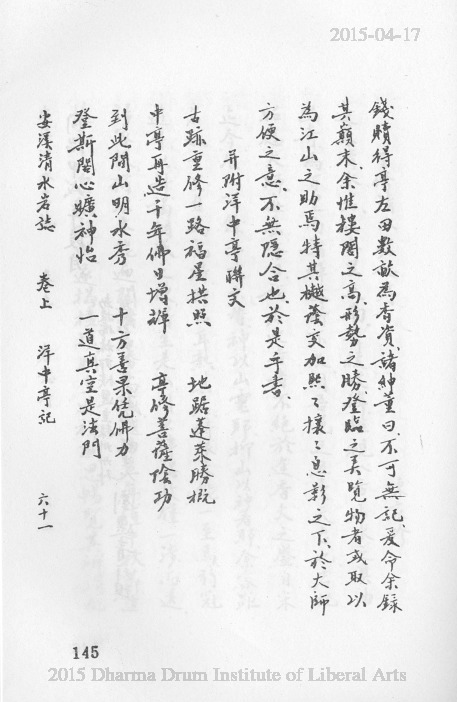 2015-04-17
錢贖得亭左田數畝為香資、諸紳董曰、不可無記、爰命余錄
其巔末余惟樓閣之高、形勢之勝、登臨之美覽物者或取以
為江山之助焉特其樾蔭交加熙〻攘〻息影之下、於大師
方便之意、不無隱合也、於是乎書、
并附洋中亭聯文
古跡重修一路福星拱照 地踞蓬萊勝概
中亭再造千年佛日增輝 亭修菩薩陰功
到此間山明水秀 十方善果凭佛力
登斯閣心曠神怡 一道真空是法門
安溪清水岩誌 卷上 洋中亭記 六十一
145
2015 Dharma Drum Institute of Liberal Arts